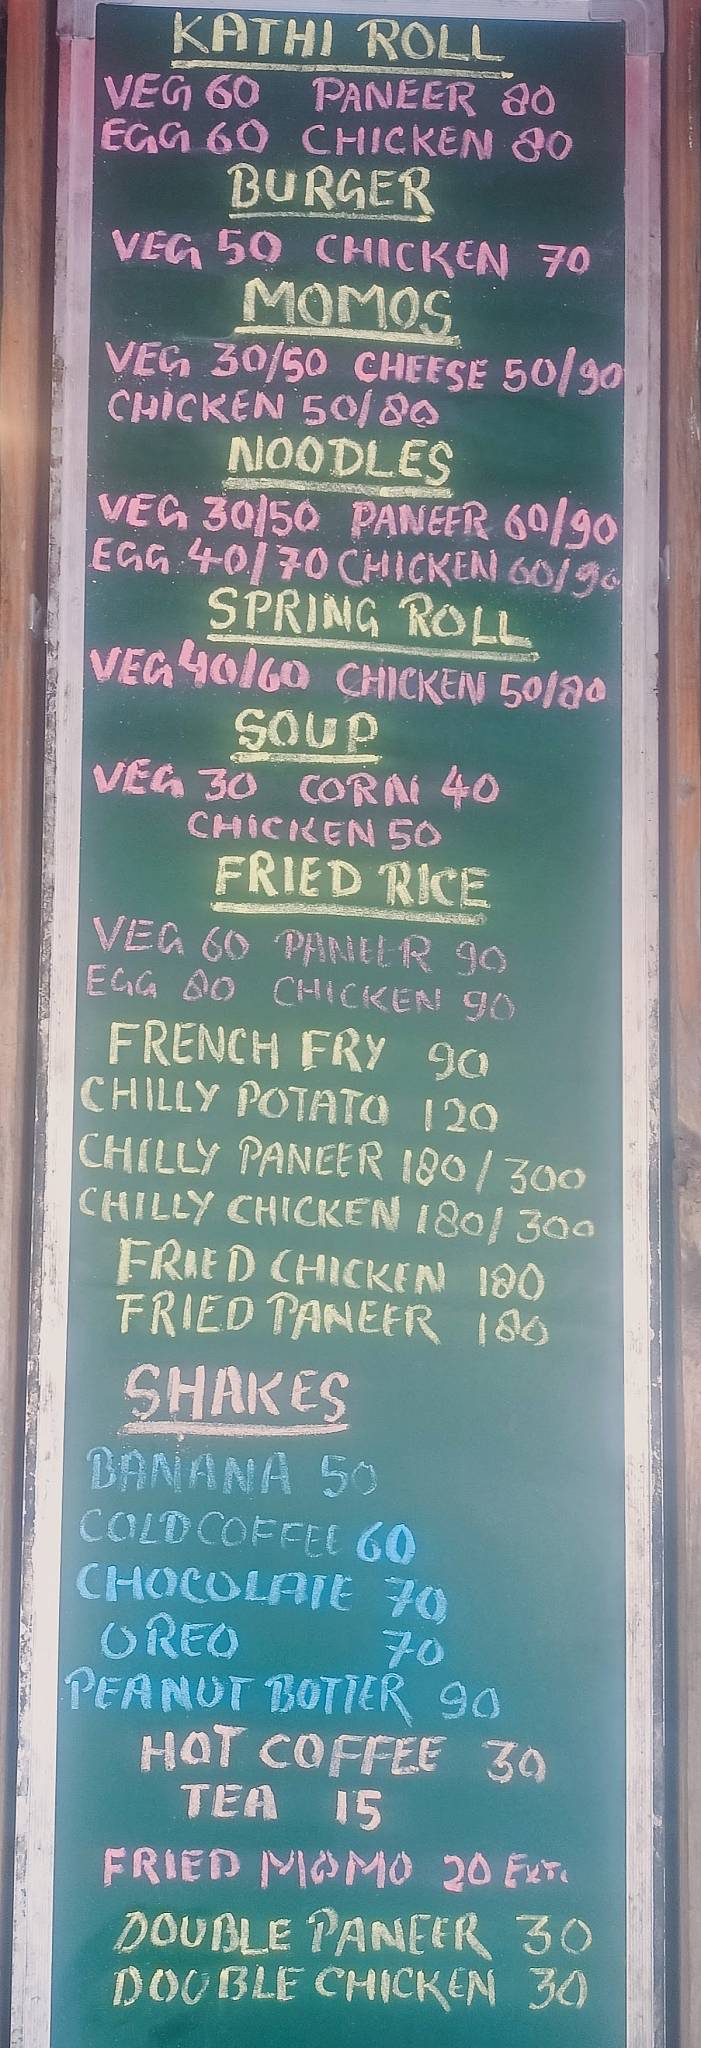 KATHI ROLL
VEG 60 PANEER 80
EGG 60 CHICKEN 80
BURGER
VEG 50 CHICKEN 70
MOMOS
VEG 30/50 CHEESE 50/90
CHICKEN 50/80
NOODLES
VEG 30/50 PANEER 60/90
EGG 40/70 CHICKEN 60/90
SPRING ROLL
VEG 40/60 CHICKEN 50/80
SOUP
VEG 30 CORN 40
CHICKEN 50
FRIED RICE
VEG 60 PANEER 90
EGG 80 CHICKEN 90
FRENCH FRY 90
CHILLY POTATO 120
CHILLY PANEER 180/300
CHILLY CHICKEN 180/300
FRIED CHICKEN 180
FRIED PANEER 180
SHAKES
BANANA 50
COLD COFFEE 60
CHOCOLATE 70
OREO 70
PEANUT BOTTER 90
HOT COFFEE 30
TEA 15
FRIED MOMO 20 Ext.
DOUBLE PANEER 30
DOUBLE CHICKEN 30